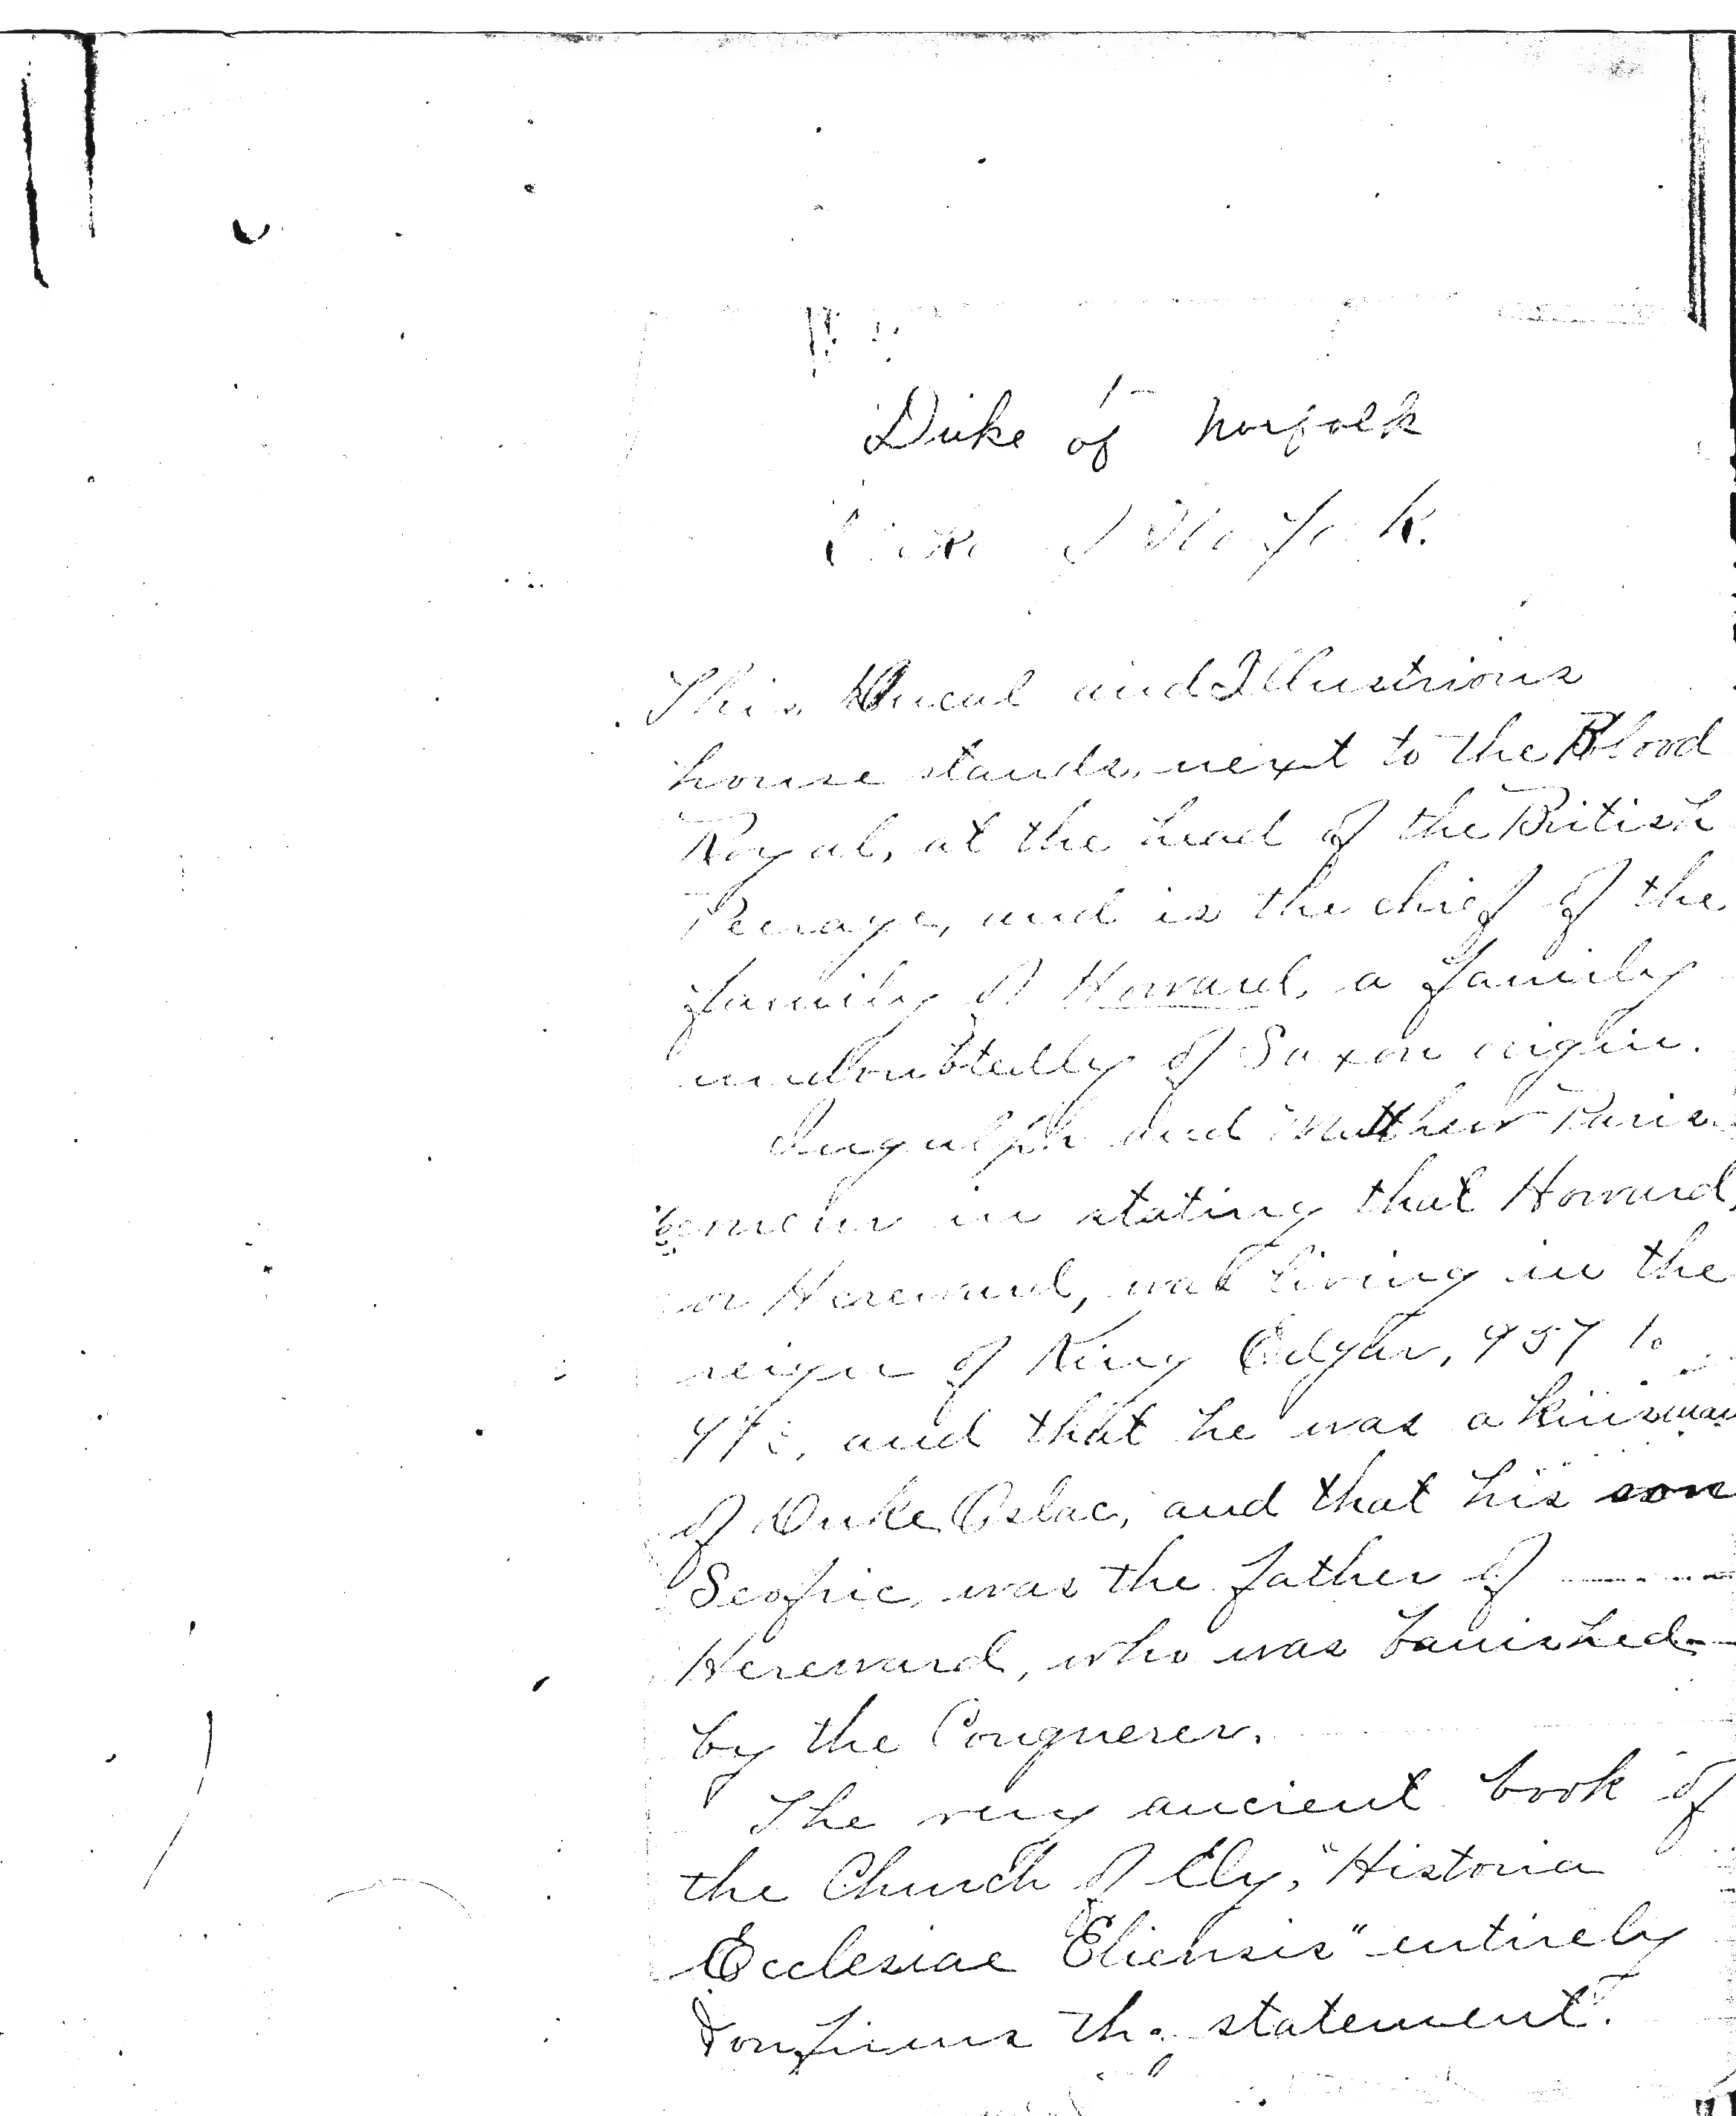 1-
Duke of Norfolk
Duke of Norfolk.
This Ducal and Illustrious
house stands, next to the Blood
Royal, at the head of the British
Peerage, and is the chief of the
family of Howard, a family
undoubtedly of Saxon origin.
Ingulph and Matthew Paris
concur in stating that Howard,
or Hereward, was living in the
reign of King Edgar, 957 to
and that he was a kinsman
of Duke Oslac, and that his son
was the father of -----
Hereward, who was banished-
by the Conquerer.
The very ancient book of
the Church of Ely, "Historia
Ecclesiae Eliensis" entirely
confirms the statement.